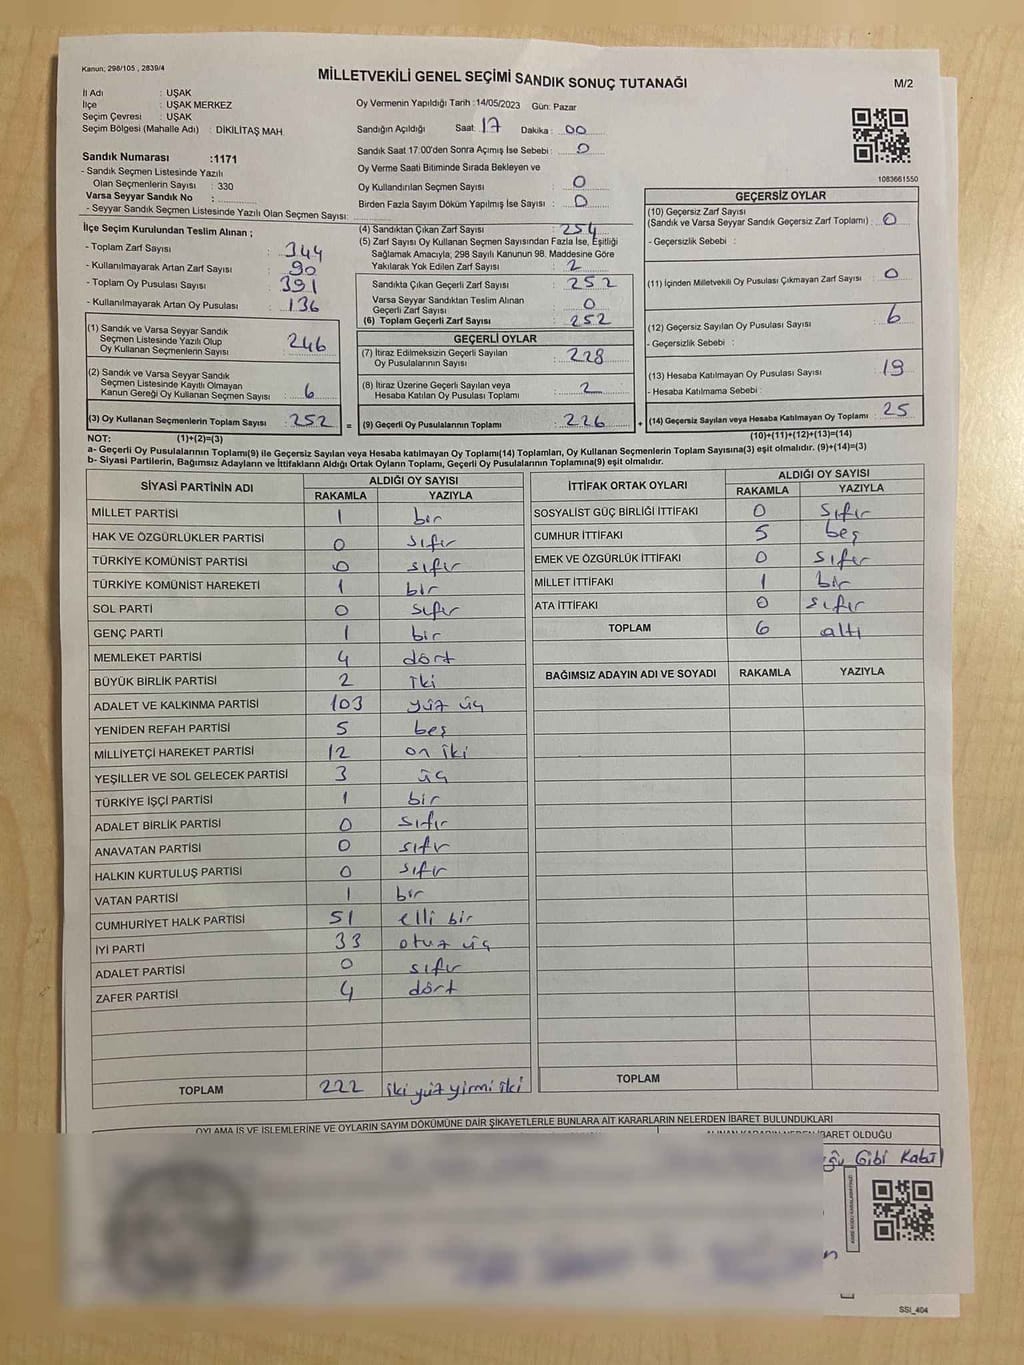 Kanun; 298/105 , 2839/4
MİLLETVEKİLİ GENEL SEÇİMİ SANDIK SONUÇ TUTANAĞI
M/2
İl Adı : UŞAK
İlçe : UŞAK MERKEZ
Seçim Çevresi : UŞAK
Seçim Bölgesi (Mahalle Adı) : DİKİLİTAŞ MAH
Oy Vermenin Yapıldığı Tarih :14/05/2023 Gün: Pazar
Sandığın Açıldığı Saat: 17 Dakika : 00
Sandık Saat 17:00'den Sonra Açımış İse Sebebi : 0
Oy Verme Saati Bitiminde Sırada Bekleyen ve
Oy Kullandırılan Seçmen Sayısı : 0
Birden Fazla Sayım Döküm Yapılmış İse Sayısı : 0
1083661550
Sandık Numarası :1171
- Sandık Seçmen Listesinde Yazılı
Olan Seçmenlerin Sayısı : 330
Varsa Seyyar Sandık No :
- Seyyar Sandık Seçmen Listesinde Yazılı Olan Seçmen Sayısı:
İlçe Seçim Kurulundan Teslim Alınan ;
- Toplam Zarf Sayısı : 344
- Kullanılmayarak Artan Zarf Sayısı : 90
- Toplam Oy Pusulası Sayısı : 391
- Kullanılmayarak Artan Oy Pusulası : 136
(1) Sandık ve Varsa Seyyar Sandık
Seçmen Listesinde Yazılı Olup
Oy Kullanan Seçmenlerin Sayısı : 246
(2) Sandık ve Varsa Seyyar Sandık
Seçmen Listesinde Kayıtlı Olmayan
Kanun Gereği Oy Kullanan Seçmen Sayısı : 6
(3) Oy Kullanan Seçmenlerin Toplam Sayısı : 252 =
(4) Sandıktan Çıkan Zarf Sayısı : 254
(5) Zarf Sayısı Oy Kullanan Seçmen Sayısından Fazla İse, Eşitliği
Sağlamak Amacıyla; 298 Sayılı Kanunun 98. Maddesine Göre
Yakılarak Yok Edilen Zarf Sayısı : 2
Sandıkta Çıkan Geçerli Zarf Sayısı : 252
Varsa Seyyar Sandıktan Teslim Alınan
Geçerli Zarf Sayısı : 0
(6) Toplam Geçerli Zarf Sayısı : 252
GEÇERLİ OYLAR
(7) İtiraz Edilmeksizin Geçerli Sayılan
Oy Pusulalarının Sayısı : 228
(8) İtiraz Üzerine Geçerli Sayılan veya
Hesaba Katılan Oy Pusulası Toplamı : 2
(9) Geçerli Oy Pusulalarının Toplamı : 226 +
GEÇERSİZ OYLAR
(10) Geçersiz Zarf Sayısı
(Sandık ve Varsa Seyyar Sandık Geçersiz Zarf Toplamı) : 0
- Geçersizlik Sebebi :
(11) İçinden Milletvekili Oy Pusulası Çıkmayan Zarf Sayısı : 0
(12) Geçersiz Sayılan Oy Pusulası Sayısı : 6
- Geçersizlik Sebebi :
(13) Hesaba Katılmayan Oy Pusulası Sayısı : 19
- Hesaba Katılmama Sebebi :
(14) Geçersiz Sayılan veya Hesaba Katılmayan Oy Toplamı : 25
NOT: (1)+(2)=(3) (10)+(11)+(12)+(13)=(14)
a- Geçerli Oy Pusulalarının Toplamı(9) ile Geçersiz Sayılan veya Hesaba katılmayan Oy Toplamı(14) Toplamları, Oy Kullanan Seçmenlerin Toplam Sayısına(3) eşit olmalıdır. (9)+(14)=(3)
b- Siyasi Partilerin, Bağımsız Adayların ve İttifakların Aldığı Ortak Oyların Toplamı, Geçerli Oy Pusulalarının Toplamına(9) eşit olmalıdır.
SİYASİ PARTİNİN ADI ALDIĞI OY SAYISI
RAKAMLA YAZIYLA
MİLLET PARTİSİ 1 bir
HAK VE ÖZGÜRLÜKLER PARTİSİ 0 sıfır
TÜRKİYE KOMÜNİST PARTİSİ 0 sıfır
TÜRKİYE KOMÜNİST HAREKETİ 1 bir
SOL PARTİ 0 sıfır
GENÇ PARTİ 1 bir
MEMLEKET PARTİSİ 4 dört
BÜYÜK BİRLİK PARTİSİ 2 iki
ADALET VE KALKINMA PARTİSİ 103 yüz üç
YENİDEN REFAH PARTİSİ 5 beş
MİLLİYETÇİ HAREKET PARTİSİ 12 on iki
YEŞİLLER VE SOL GELECEK PARTİSİ 3 üç
TÜRKİYE İŞÇİ PARTİSİ 1 bir
ADALET BİRLİK PARTİSİ 0 sıfır
ANAVATAN PARTİSİ 0 sıfır
HALKIN KURTULUŞ PARTİSİ 0 sıfır
VATAN PARTİSİ 1 bir
CUMHURİYET HALK PARTİSİ 51 elli bir
İYİ PARTİ 33 otuz üç
ADALET PARTİSİ 0 sıfır
ZAFER PARTİSİ 4 dört
TOPLAM 222 iki yüz yirmi iki
İTTİFAK ORTAK OYLARI ALDIĞI OY SAYISI
RAKAMLA YAZIYLA
SOSYALİST GÜÇ BİRLİĞİ İTTİFAKI 0 sıfır
CUMHUR İTTİFAKI 5 beş
EMEK VE ÖZGÜRLÜK İTTİFAKI 0 sıfır
MİLLET İTTİFAKI 1 bir
ATA İTTİFAKI 0 sıfır
TOPLAM 6 altı
BAĞIMSIZ ADAYIN ADI VE SOYADI RAKAMLA YAZIYLA
TOPLAM
OYLAMA İŞ VE İŞLEMLERİNE VE OYLARIN SAYIM DÖKÜMÜNE DAİR ŞİKAYETLERLE BUNLARA AİT KARARLARIN NELERDEN İBARET BULUNDUKLARI
BARET OLDUĞU
Gibi Kabul
SSI_404